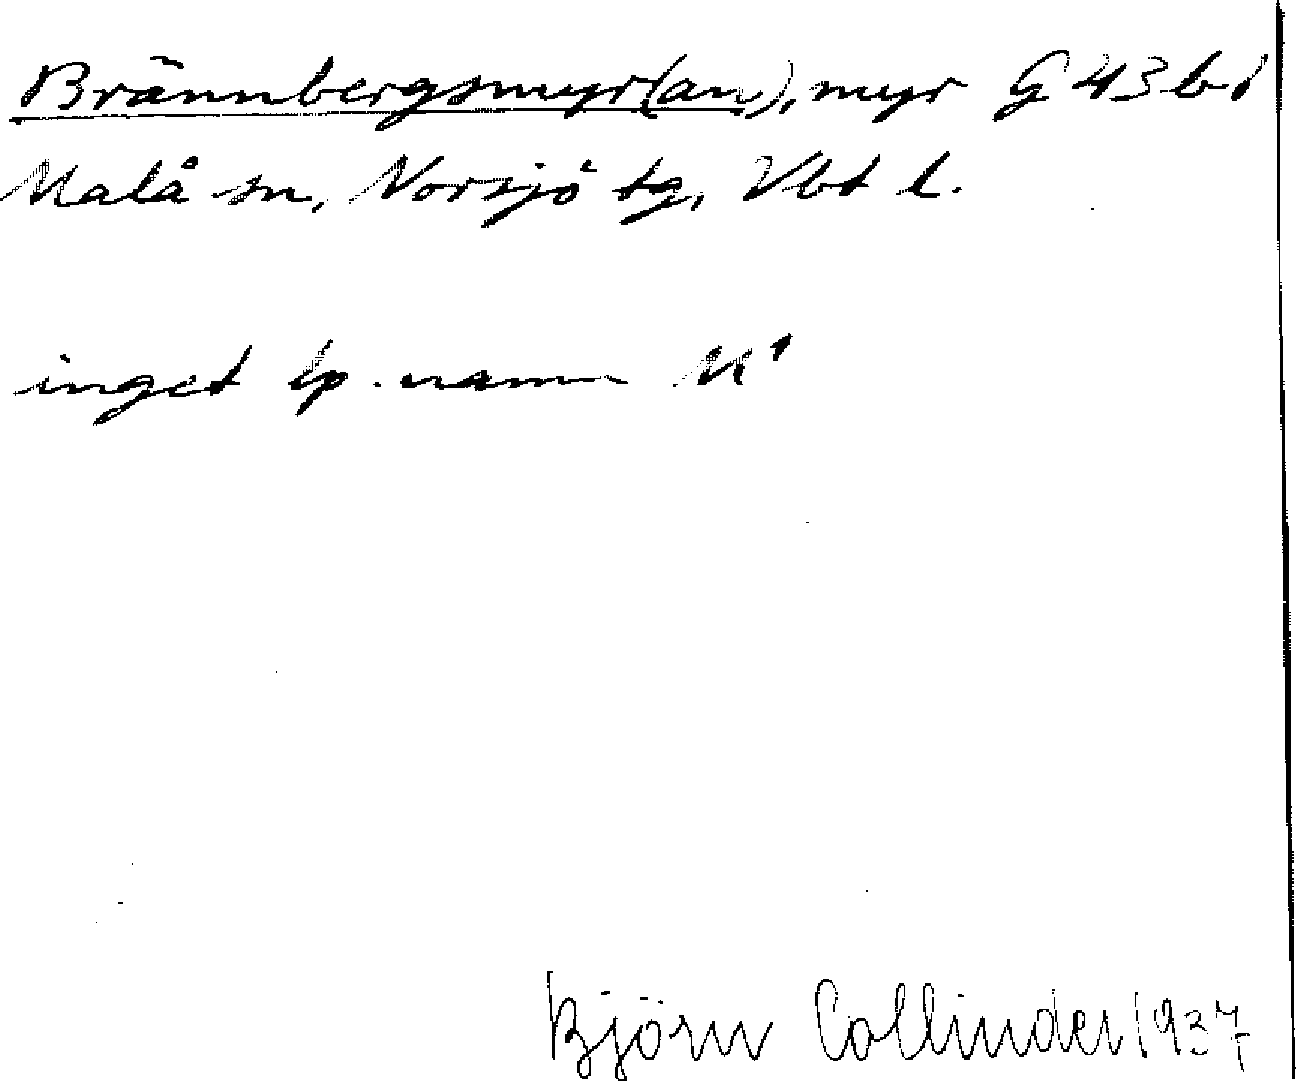 Brännbergsmyr(an), myr G 43 bi
Malå sn, Norsjö tg, Vbt l.
inget lp. namn M¹
Björn Collinder 1937